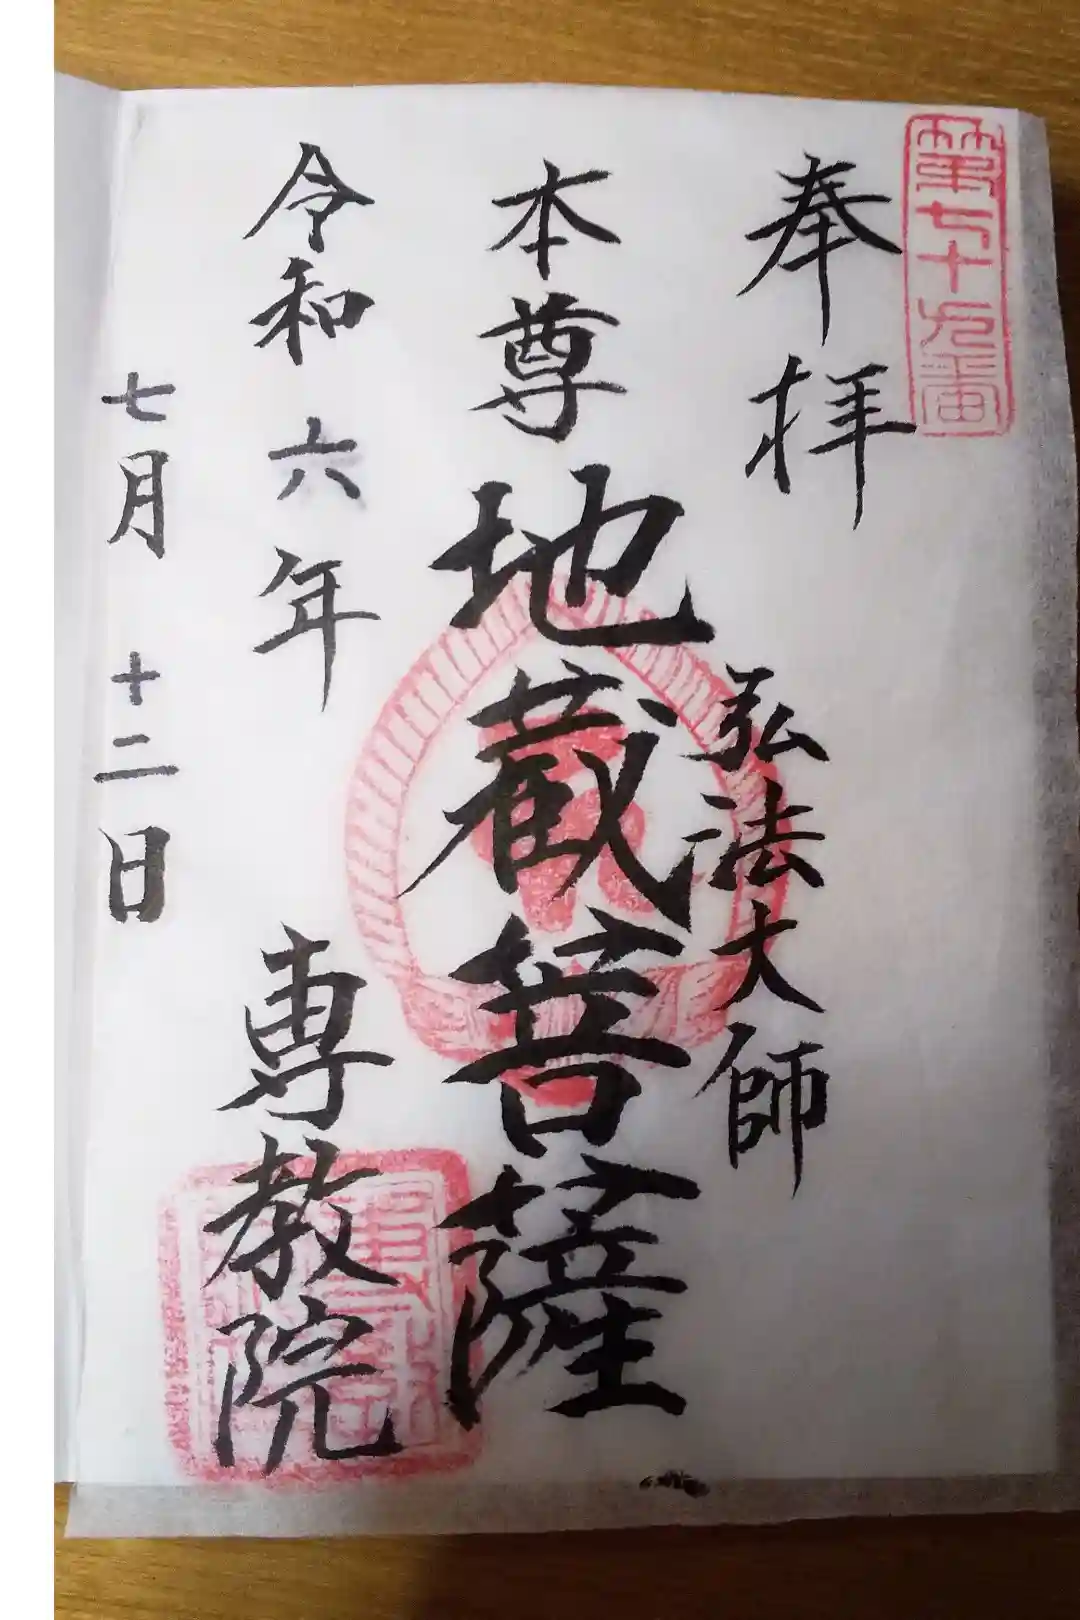 第七十九番
奉拝
弘法大師
本尊地蔵菩薩
令和六年
専教院
七月十二日